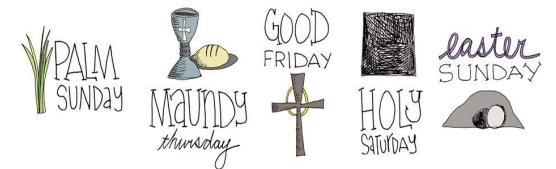 PALM
SUNDAY
MAUNDY
thursday
GOOD
FRIDAY
HOLY
SATURDAY
easter
SUNDAY